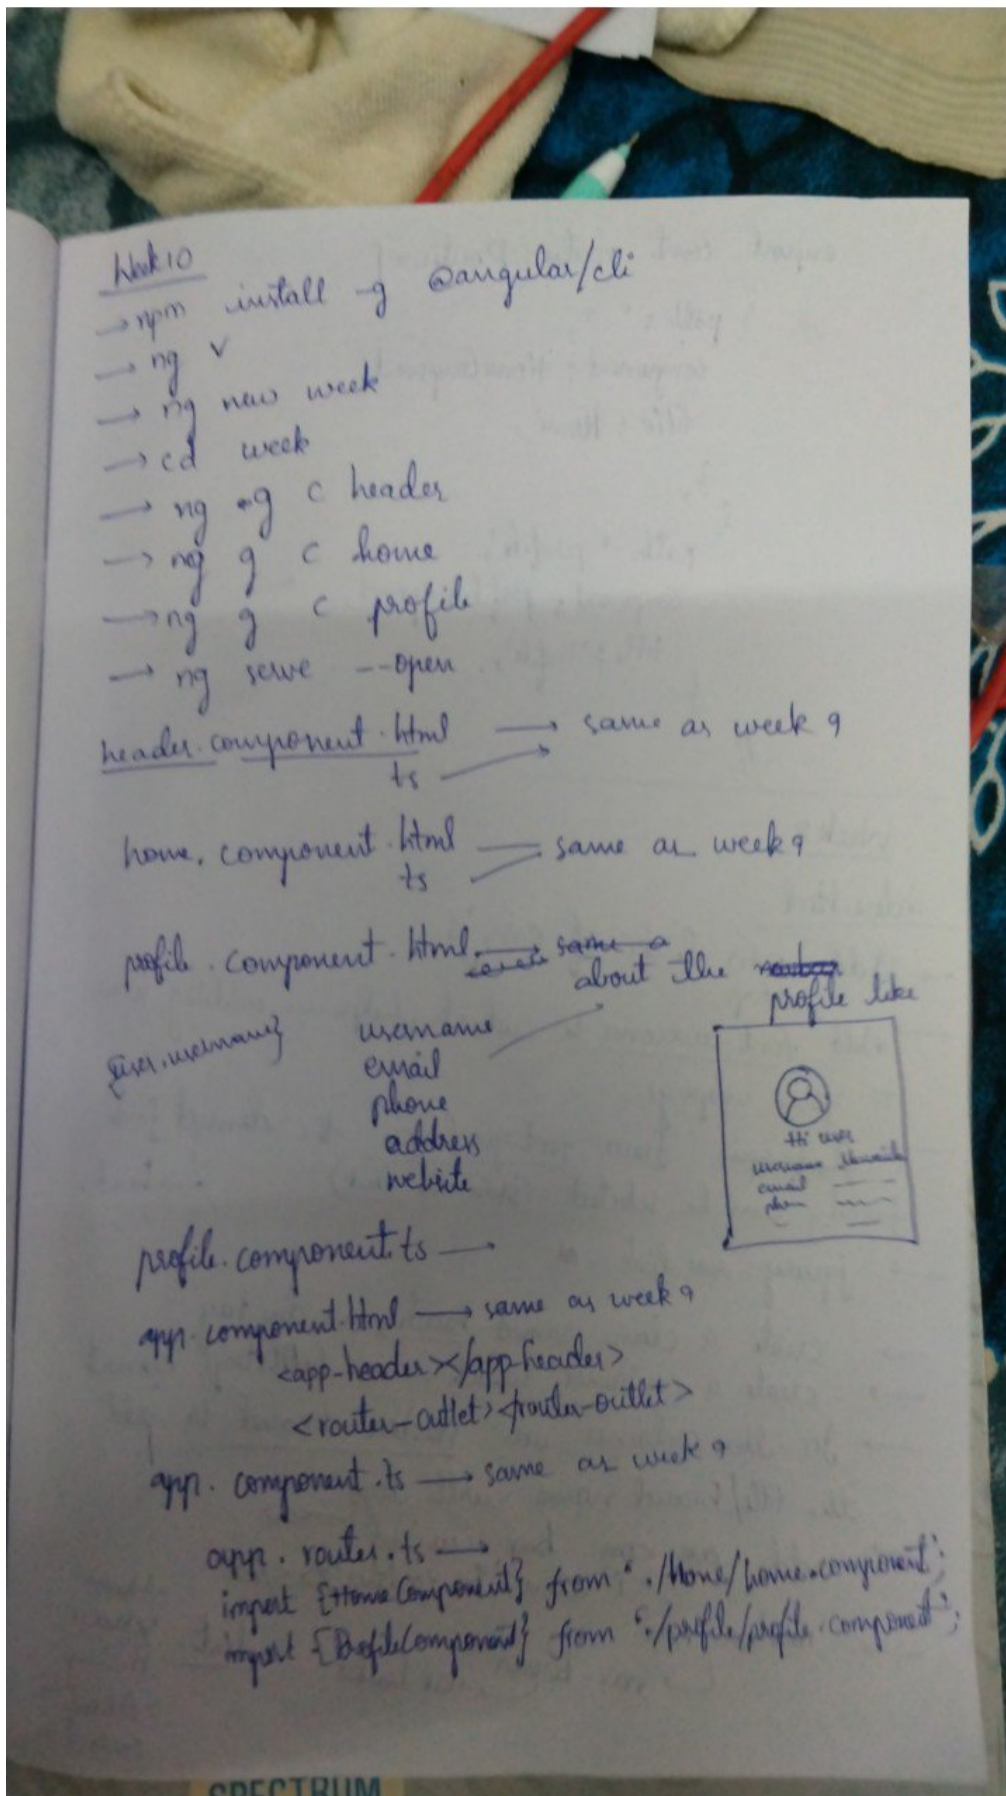 Week 10
→ npm install -g @angular/cli
→ ng v
→ ng new week
→ cd week
→ ng g c header
→ ng g c home
→ ng g c profile
→ ng serve --open
header.component.html → same as week 9
ts
home.component.html same as week 9
ts
profile.component.html same a
about the
profile like
{user.username}
username
email
phone
address
website
Hi user
username
email
profile.component.ts →
app.component.html → same as week 9
<app-header></app-header>
<router-outlet></router-outlet>
app.component.ts → same as week 9
app.router.ts →
import {HomeComponent} from './Home/home.component';
import {ProfileComponent} from './profile/profile.component';
SPECTRUM